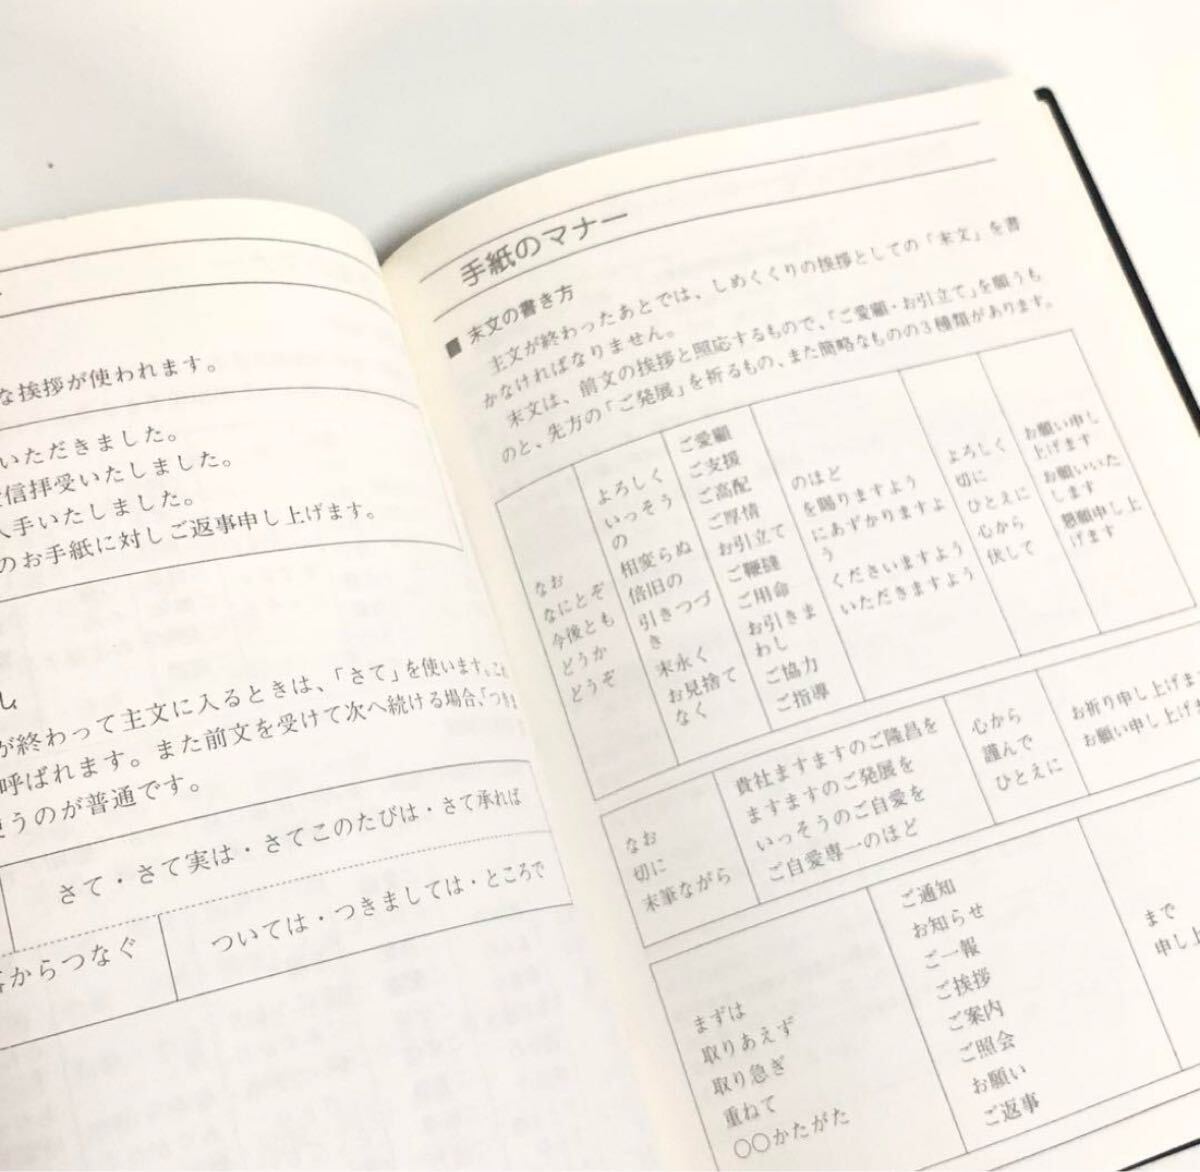 な挨拶が使われます。
いただきました。
信拝受いたしました。
手いたしました。
のお手紙に対しご返事申し上げます。
し
が終わって主文に入るときは、「さて」を使います。これ
呼ばれます。また前文を受けて次へ続ける場合、「つきま
使うのが普通です。
さて・さて実は・さてこのたびは・さて承れば
からつなぐ
ついては・つきましては・ところで
手紙のマナー
■ 末文の書き方
主文が終わったあとでは、しめくくりの挨拶としての「末文」を書
かなければなりません。
末文は、前文の挨拶と照応するもので、「ご愛顧・お引立て」を願うも
のと、先方の「ご発展」を祈るもの、また簡略なものの3種類があります。
なお
なにとぞ
今後とも
どうか
どうぞ
よろしく
いっそう
の
相変らぬ
倍旧の
引きつづ
き
末永く
お見捨て
なく
ご愛顧
ご支援
ご高配
ご厚情
お引立て
ご鞭撻
ご用命
お引きま
わし
ご協力
ご指導
のほど
を賜りますよう
にあずかりますよ
う
くださいますよう
いただきますよう
よろしく
切に
ひとえに
心から
伏して
お願い申し
上げます
お願いいた
します
懇願申し上
げます
なお
切に
末筆ながら
貴社ますますのご隆昌を
ますますのご発展を
いっそうのご自愛を
ご自愛専一のほど
心から
謹んで
ひとえに
お祈り申し上げます
お願い申し上げま
まずは
取りあえず
取り急ぎ
重ねて
〇〇かたがた
ご通知
お知らせ
ご一報
ご挨拶
ご案内
ご照会
お願い
ご返事
まで
申し上